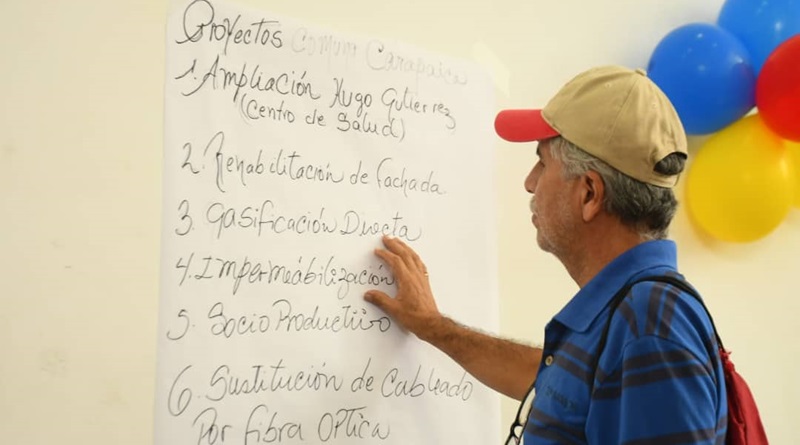 Proyectos Comuna Carapaica
1. Ampliación Hugo Gutierrez
(Centro de Salud)
2. Rehabilitación de fachada
3. gasificación Directa
4. Impermeábilización
5. Socio Productivo
6. Sustitución de Cableado
Por fibra Optica